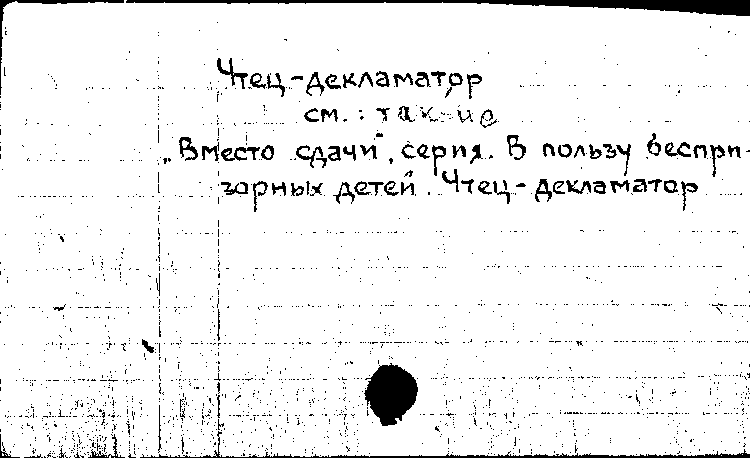 Чтец-декламатор
см.: также
„Вместо сдачи", серия. В пользу беспри-
зорных детей. Чтец-декламатор